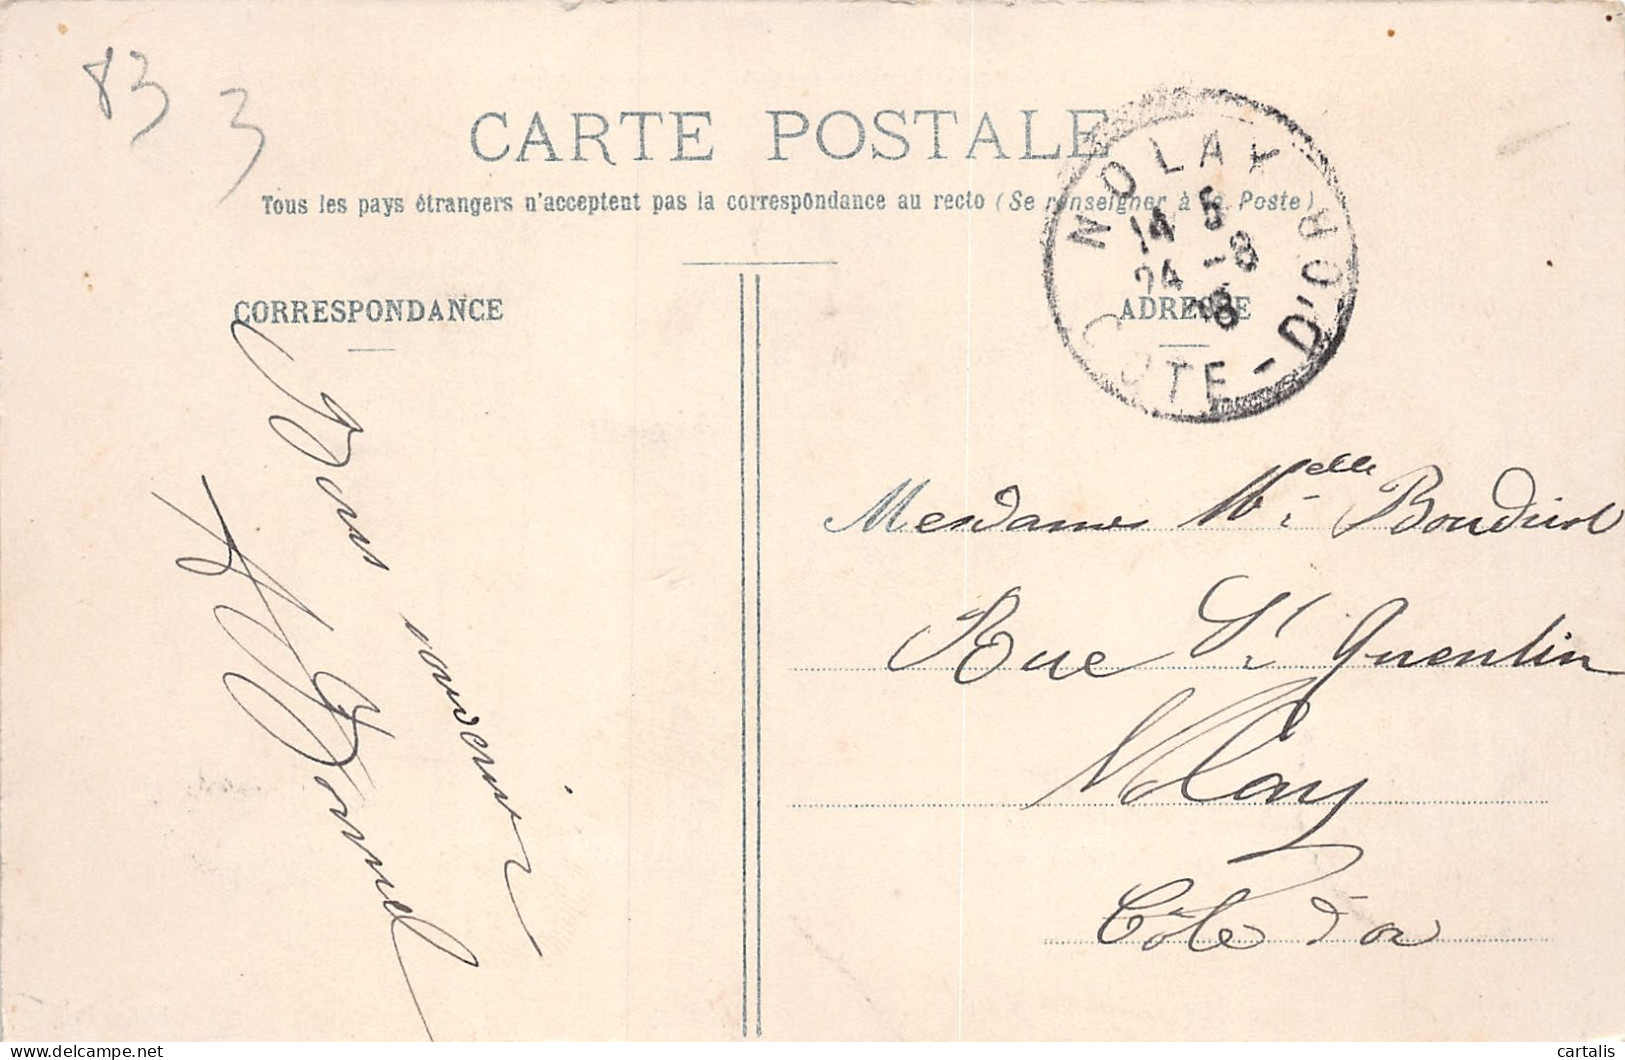 83 3
CARTE POSTALE
Tous les pays étrangers n'acceptent pas la correspondance au recto (Se renseigner à la Poste)
CORRESPONDANCE
ADRESSE
NOLAY
14 5
24 -8
CÔTE-D'OR
Bons souvenirs
Mesdame Melle Boudirot
Rue St Quentin
Nolay
Côte d'or
delcampe.net
cartalis